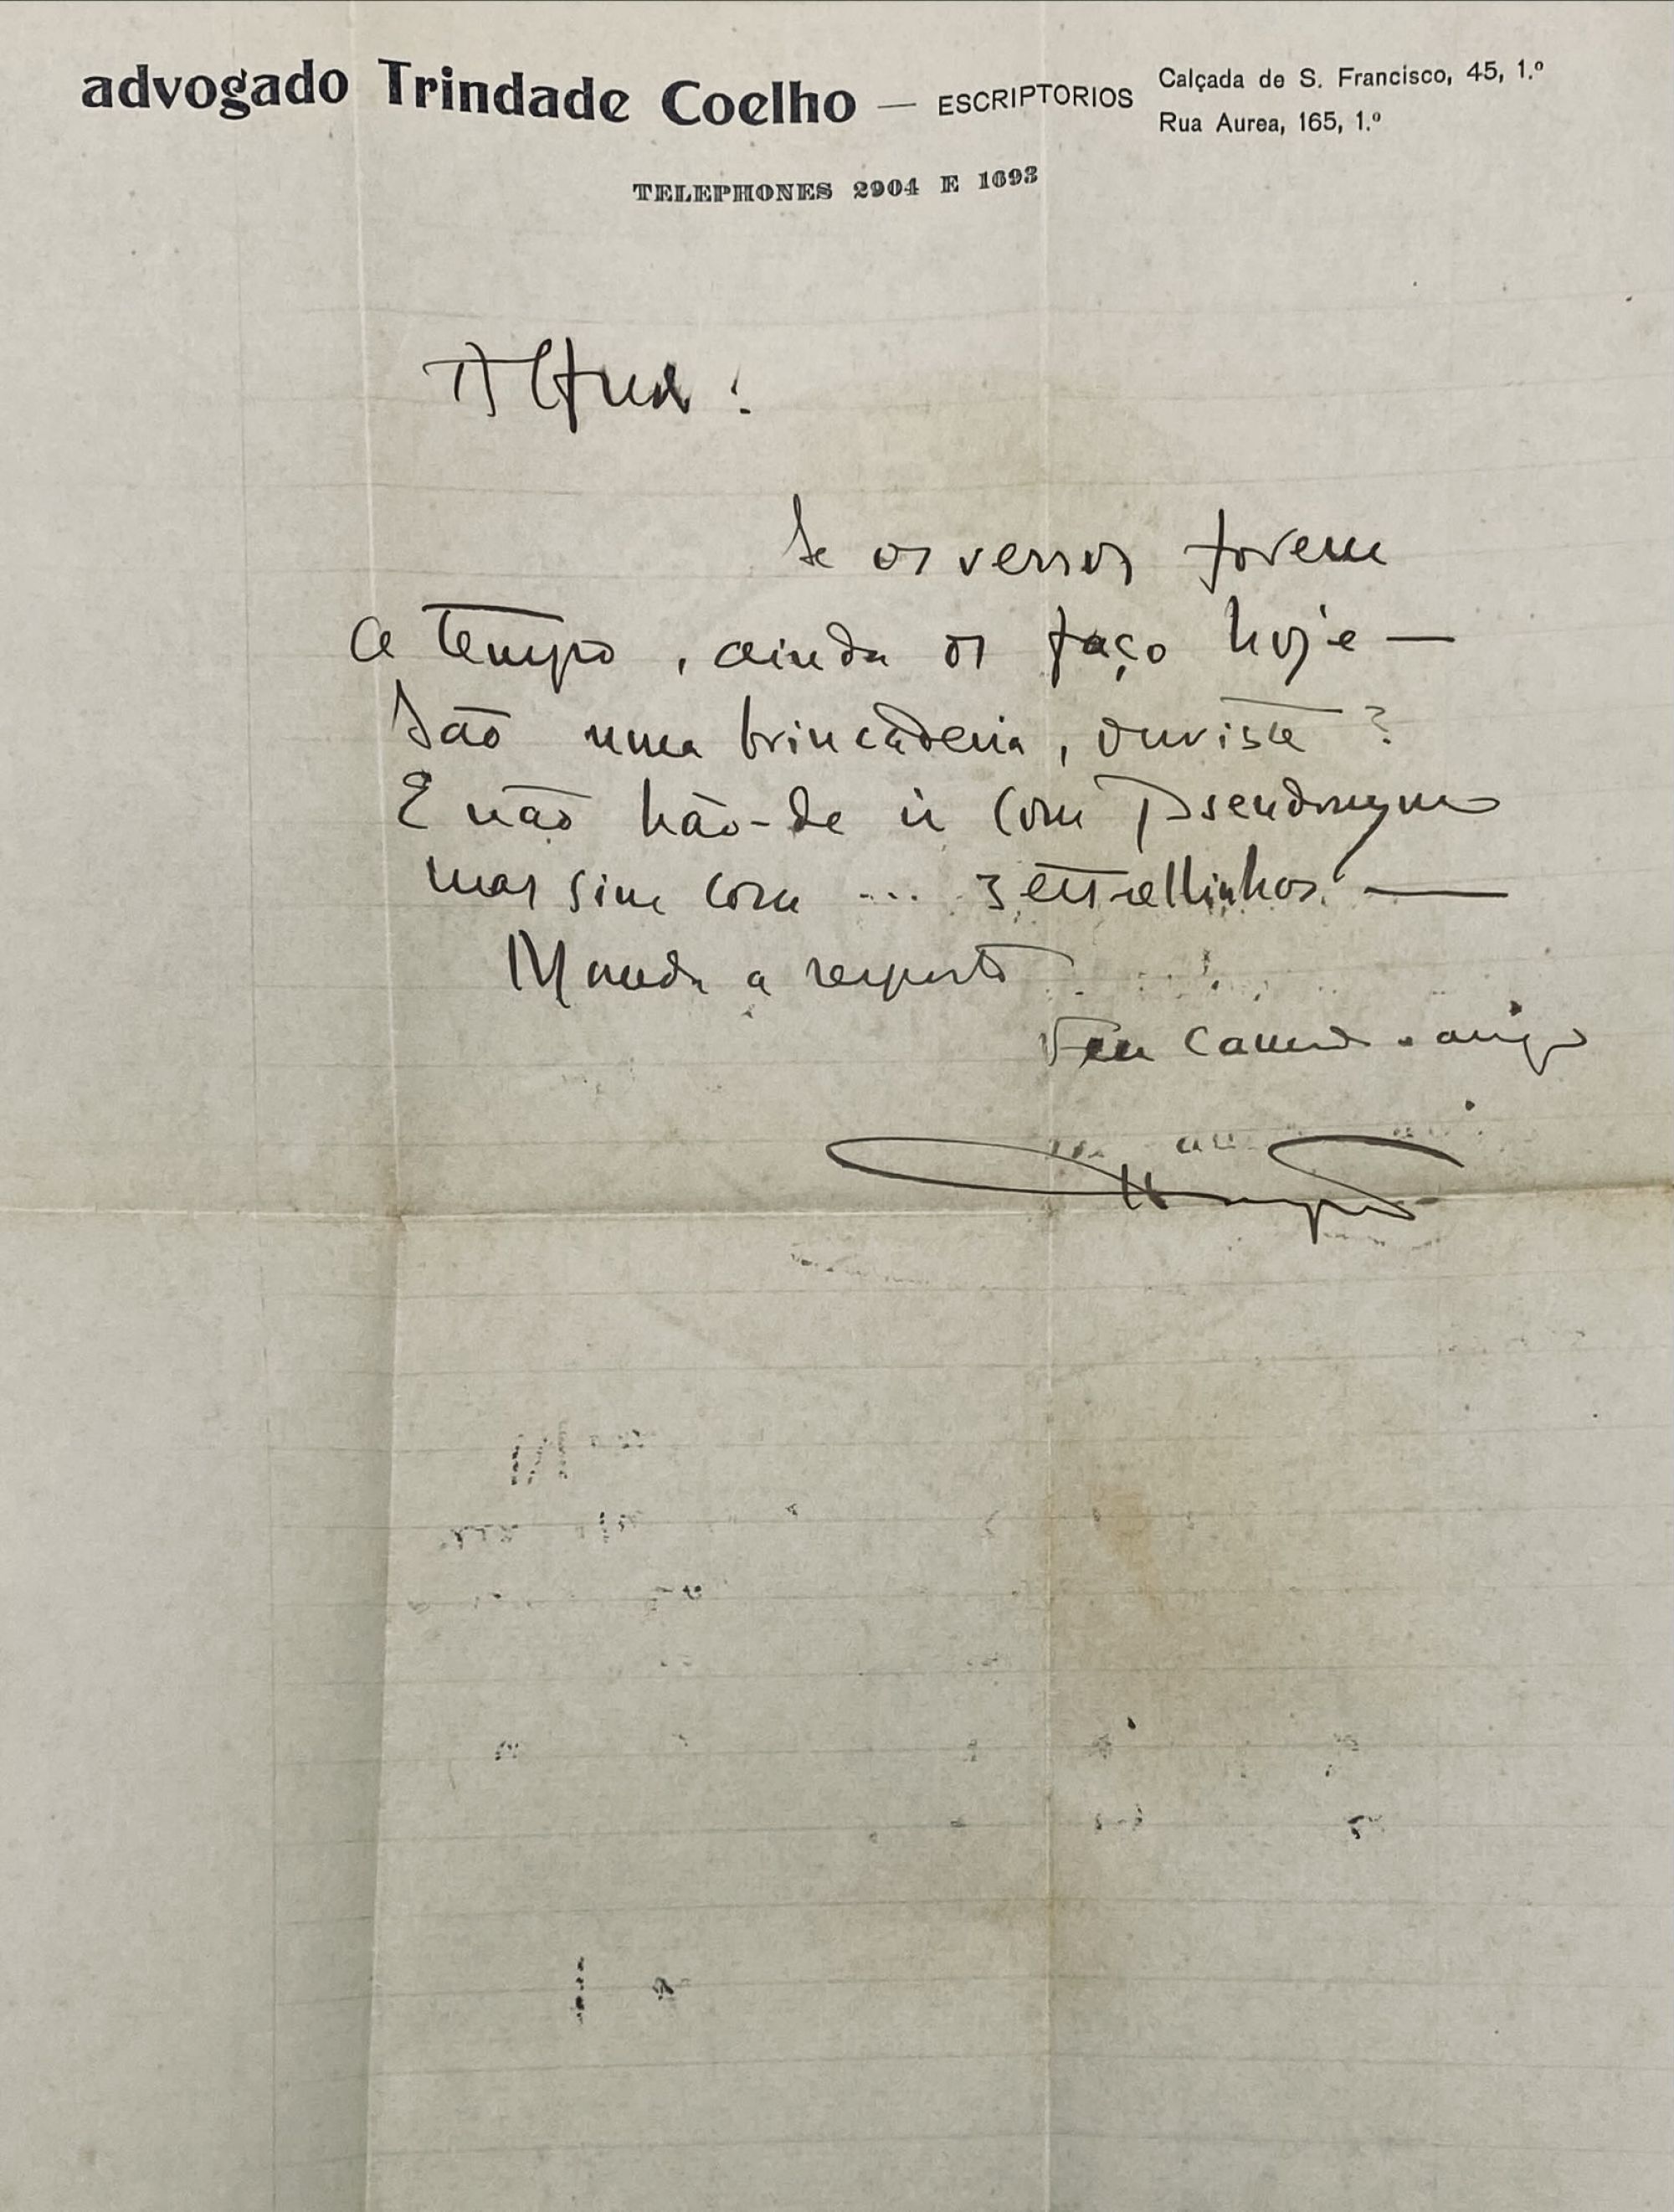 advogado Trindade Coelho — ESCRIPTORIOS Calçada de S. Francisco, 45, 1.º
Rua Aurea, 165, 1.º
TELEPHONES 2904 E 1693
Se os versos forem
a tempo, ainda os faço hoje —
São uma brincadeira, ouviste?
E não hão-de ir com Pseudonymo
mas sim com ... 3 estrellinhas. —
Manda a resposta
Teu camara. amigo